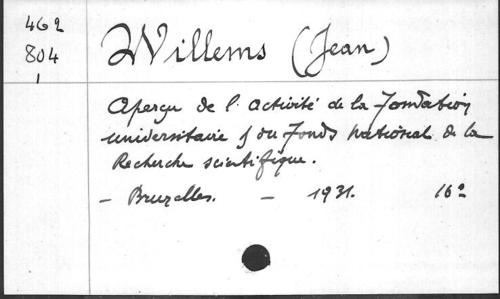 462
804
1
Willems (Jean)
Aperçu de l'activité de la Fondation
universitaire & du Fonds National de la
Recherche scientifique.
— Bruxelles. — 1931. 16º